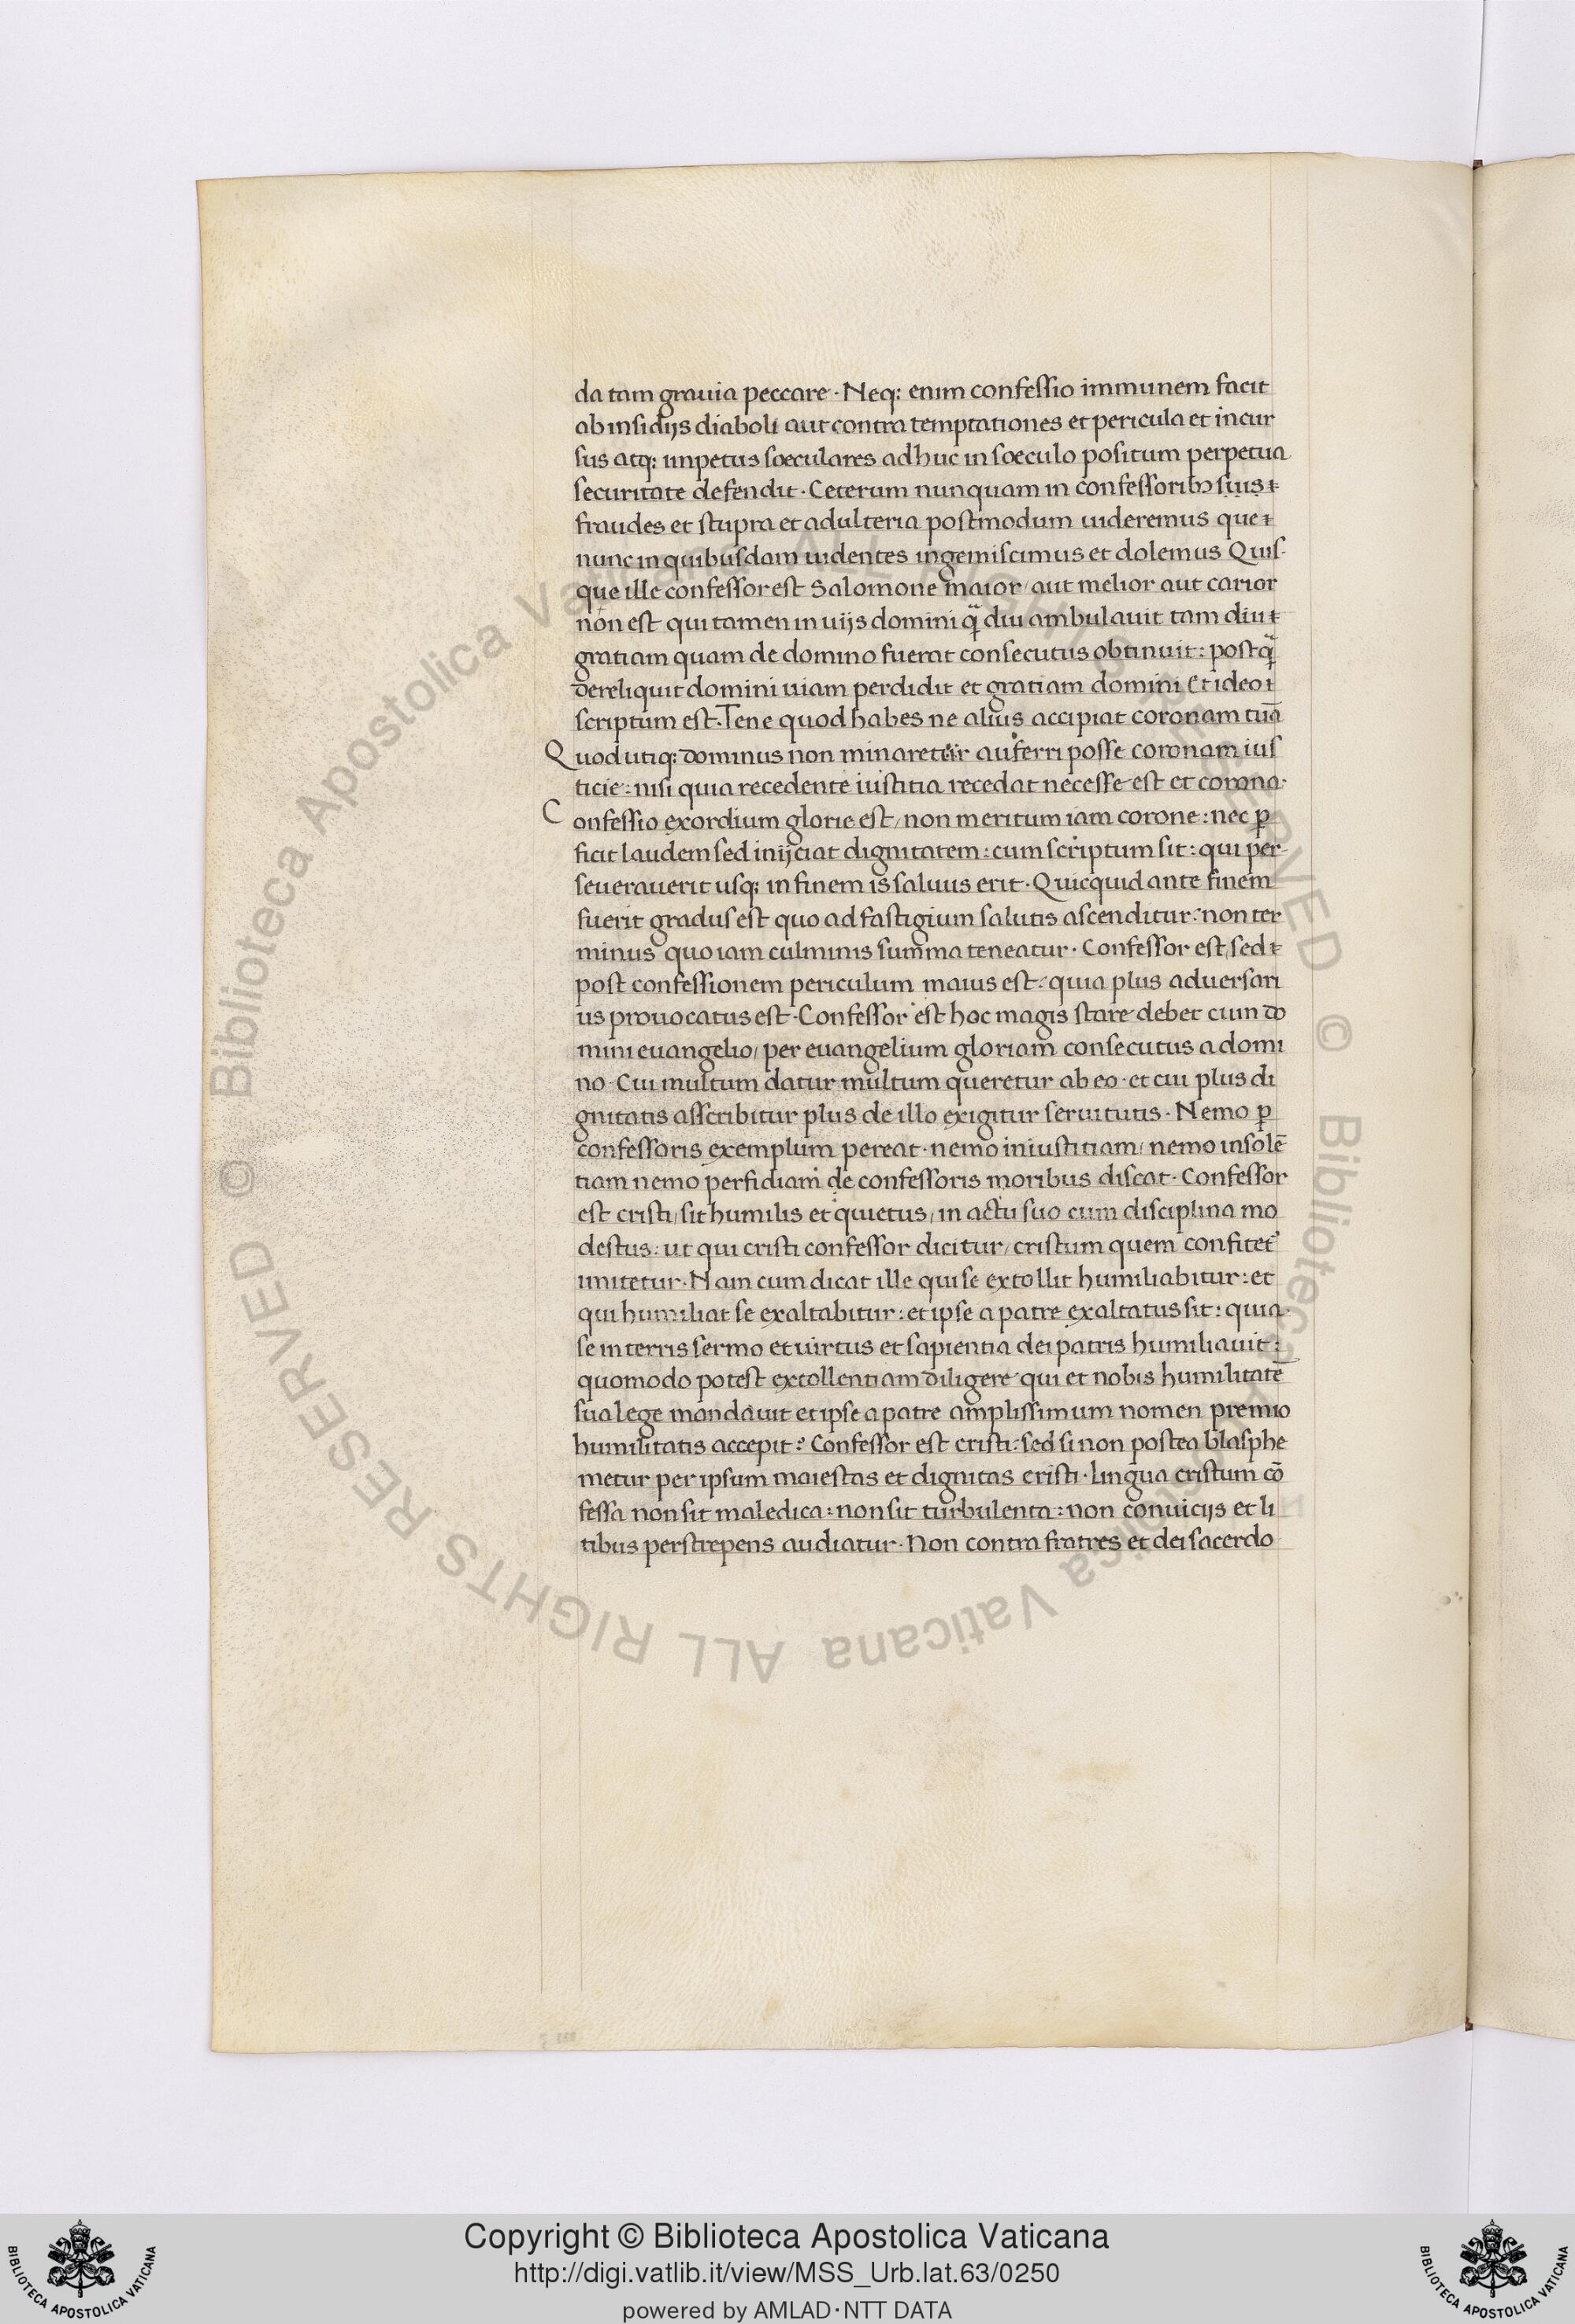 da tam grauia peccare · Neq; enim confessio immunem facit
ab insidijs diaboli aut contra temptationes et pericula et incur
sus atq; impetus sœculares adhuc in sœculo positum perpetua
securitate defendit · Ceterum nunquam in confessorib3 suis
fraudes et stupra et adulteria postmodum uideremus que
nunc in quibusdam uidentes ingemiscimus et dolemus Quis
que ille confessor est Salomone maior / aut melior aut carior
non est qui tamen in uijs domini q̃ diu ambulauit tam diu
gratiam quam de domino fuerat consecutus obtinuit : postq̃
dereliquit domini uiam perdidit et gratiam domini Et ideo
scriptum est. Tene quod habes ne alius accipiat coronam tuā
Quod utiq; dominus non minaretur auferri posse coronam ius
ticie : nisi quia recedente iustitia recedat necesse est et corona ·
Confessio exordium glorie est / non meritum iam corone : nec ꝑ
ficit laudem sed inijciat dignitatem : cum scriptum sit : qui per
seuerauerit usq; in finem is saluus erit · Quicquid ante finem
fuerit gradus est quo ad fastigium salutis ascenditur : non ter
minus quo iam culminis summa teneatur · Confessor est / sed
post confessionem periculum maius est : quia plus aduersari
us prouocatus est · Confessor est hoc magis stare debet cum do
mini euangelio / per euangelium gloriam consecutus a domi
no · Cui multum datur multum queretur ab eo · et cui plus di
gnitatis asscribitur plus de illo exigitur seruitutis · Nemo ꝑ
confessoris exemplum pereat · nemo iniustitiam / nemo insolē
tiam nemo perfidiam de confessoris moribus discat · Confessor
est cristi / sit humilis et quietus / in actu suo cum disciplina mo
destus : ut qui cristi confessor dicitur / cristum quem confitet᷑
imitetur · Nam cum dicat ille qui se extollit humiliabitur : et
qui humiliat se exaltabitur : et ipse a patre exaltatus sit : quia
se in terris sermo et uirtus et sapientia dei patris humiliauit :
quomodo potest extollentiam diligere qui et nobis humilitatē
sua lege mandauit et ipse a patre amplissimum nomen premio
humilitatis accepit ? Confessor est cristi : sed si non postea blasphe
metur per ipsum maiestas et dignitas cristi · lingua cristum cō
fessa non sit maledica : non sit turbulenta : non conuicijs et li
tibus perstrepens audiatur · Non contra fratres et dei sacerdo
© Biblioteca Apostolica Vaticana ALL RIGHTS RESERVED © Biblioteca Apostolica Vaticana ALL RIGHTS RESERVED
BIBLIOTECA APOSTOLICA VATICANA
Copyright © Biblioteca Apostolica Vaticana
http://digi.vatlib.it/view/MSS_Urb.lat.63/0250
powered by AMLAD·NTT DATA
BIBLIOTECA APOSTOLICA VATICANA